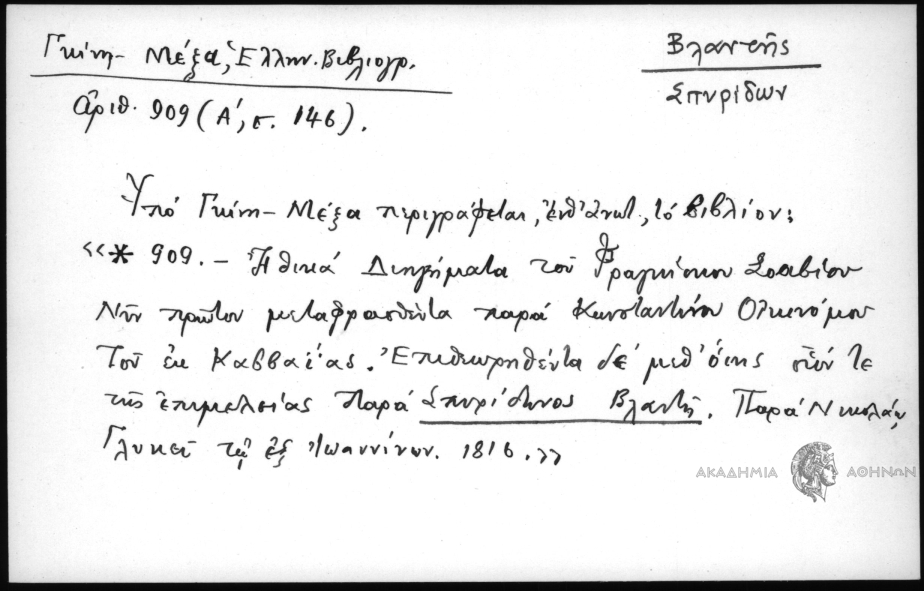 Γκίνη - Μέξα, Ἑλλην. Βιβλιογρ.
ἀριθ. 909 (Α', σ. 146).
Βλαντῆς
Σπυρίδων
Ὑπό Γκίνη - Μέξα περιγράφεται, ἐνθ' ἀνωτ., τό βιβλίον:
«* 909. - Ἠθικά Διηγήματα τοῦ Φραγκίσκου Σοαβίου
Νῦν πρῶτον μεταφρασθέντα παρά Κωνσταντίνου Οἰκονόμου
τοῦ ἐκ Καββαίας. Ἐπιθεωρηθέντα δέ μεθ' ὅσης οἷόν τε
τῆς ἐπιμελείας παρά Σπυρίδωνος Βλαντῆ. Παρά Νικολάῳ
Γλυκεῖ τῷ ἐξ Ἰωαννίνων. 1816.»
ΑΚΑΔΗΜΙΑ ΑΘΗΝΩΝ